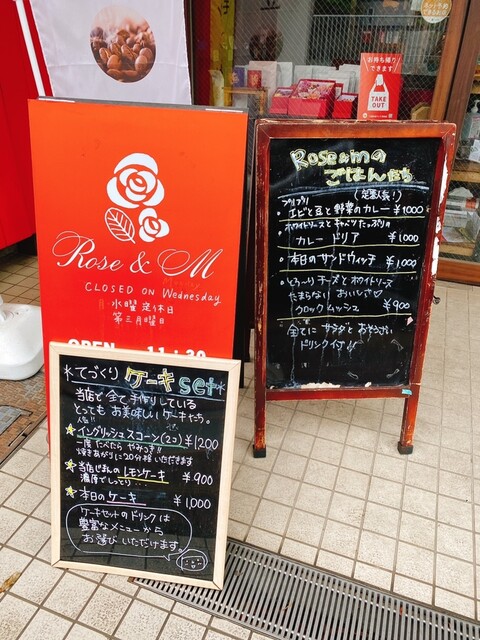 Rose & M
CLOSED ON Wednesday
水曜定休日
第三月曜日
OPEN 11:30
お持ち帰り
できます
TAKE
OUT
Rose&mの
ごはんたち
(定番人気!)
プリプリ
・エビと豆と野菜のカレー ¥1000
・ホワイトソースとキャベツたっぷりの
カレードリア ¥1000
・本日のサンドウィッチ ¥1,000
・とろ〜りチーズとホワイトソース
たまらない おいしさ♡
クロックムッシュ ¥900
全てに サラダと
ドリンク付!!
*てづくり ケーキset*
当店で全て手作りしている
とっても お美味しいケーキたち。
人気!!
★イングリッシュスコーン(2コ) ¥1200
一度たべたら やみつき!!
焼きあがりに20分程いただきます
★当店じまんのレモンケーキ ¥900
濃厚でしっとり…
★本日のケーキ ¥1,000
ケーキセットのドリンクは
豊富なメニューから
お選びいただけます。